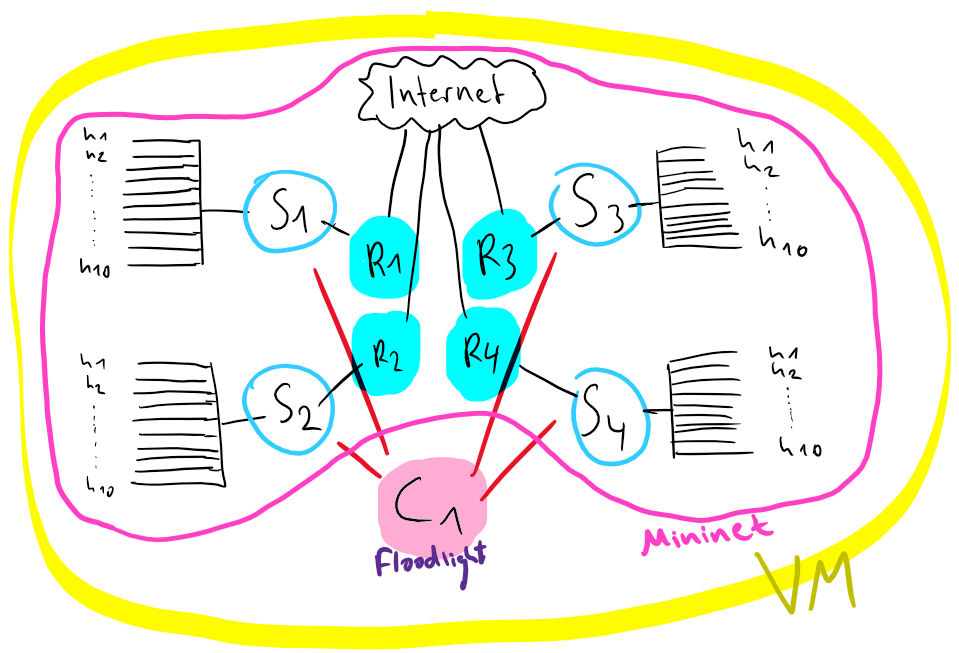 Internet
h1
h2
h10
S1
R1
R3
S3
h1
h2
h10
h1
h2
h10
S2
R2
R4
S4
h1
h2
h10
C1
Floodlight
Mininet
VM